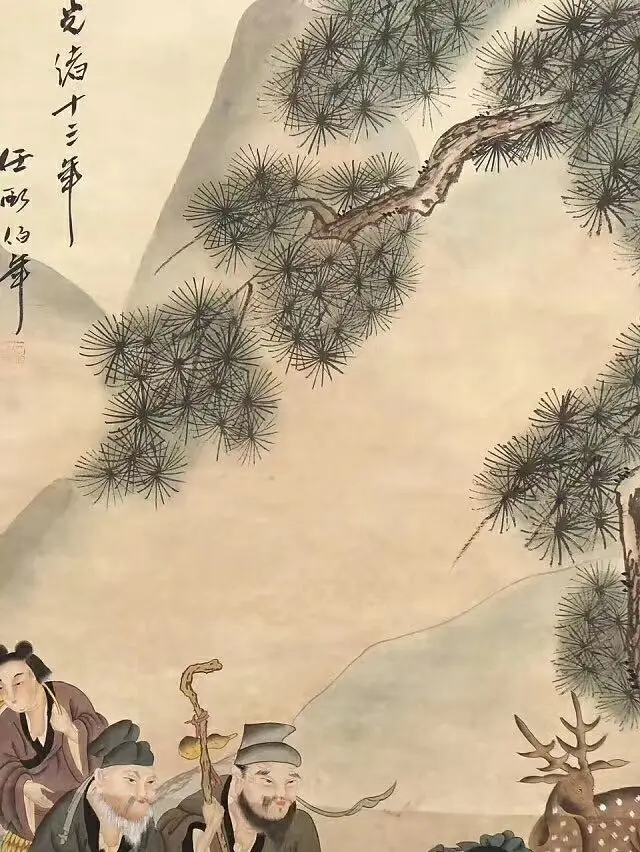 光緒十三年
任頤伯年